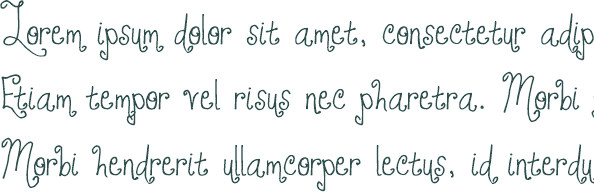 Lorem ipsum dolor sit amet, consectetur adip
Etiam tempor vel risus nec pharetra. Morbi
Morbi hendrerit ullamcorper lectus, id interdu